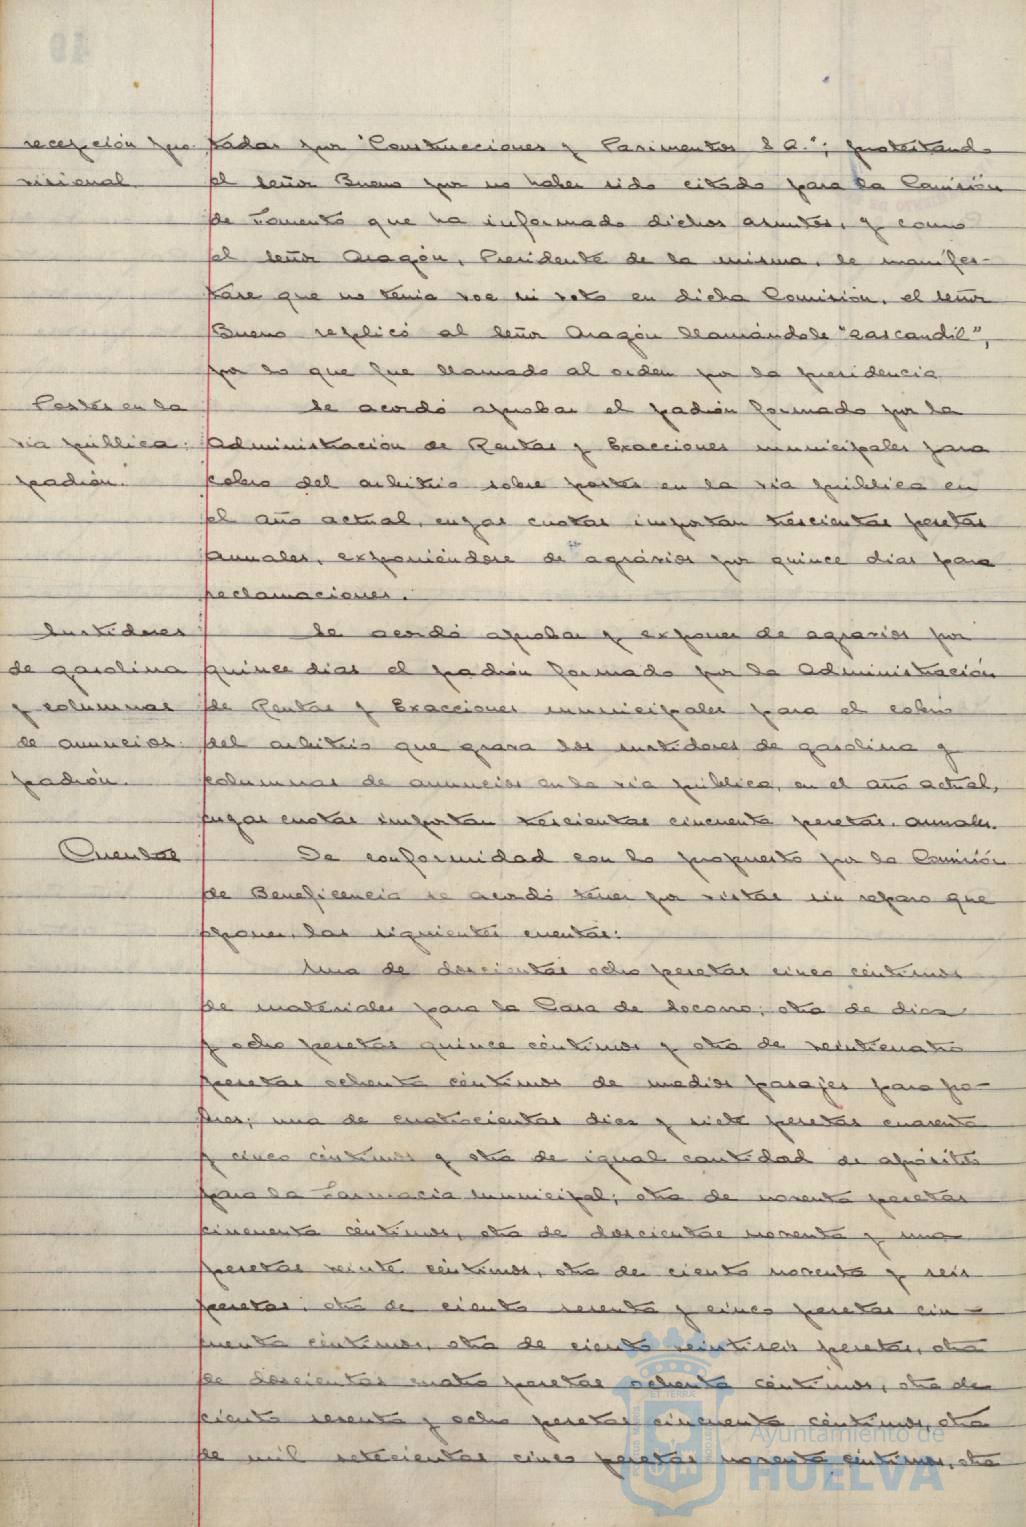 recepción pro-
visional.
tadas por "Construcciones y Pavimentos S.A."; protestando
el señor Bueno por no haber sido citado para la Comisión
de Fomento que ha informado dichos asuntos, y como
el señor Aragón, Presidente de la misma, le manifes-
tase que no tenía voz ni voto en dicha Comisión, el señor
Bueno replicó al señor Aragón llamándole "zascandil",
por lo que fue llamado al orden por la presidencia
Postes en la
vía pública:
padrón.
Se acordó aprobar el padrón formado por la
Administración de Rentas y Exacciones municipales para
cobro del arbitrio sobre postes en la vía pública en
el año actual, cuyas cuotas importan trescientas pesetas
anuales, exponiéndose de agravios por quince días para
reclamaciones.
Surtidores
de gasolina
y columnas
de anuncios:
padrón.
Se acordó aprobar y exponer de agravios por
quince días el padrón formado por la Administración
de Rentas y Exacciones municipales para el cobro
del arbitrio que grava los surtidores de gasolina y
columnas de anuncios en la vía pública, en el año actual,
cuyas cuotas importan trescientas cincuenta pesetas anuales.
Cuentas
De conformidad con lo propuesto por la Comisión
de Beneficencia se acordó tener por vistas sin reparo que
oponer, las siguientes cuentas:
Una de doscientas ocho pesetas cinco céntimos
de materiales para la Casa de Socorro; otra de diez
y ocho pesetas quince céntimos y otra de veinticuatro
pesetas ochenta céntimos de medios pasajes para po-
bres; una de cuatrocientas diez y siete pesetas cuarenta
y cinco céntimos y otra de igual cantidad de apósitos
para la Farmacia municipal; otra de noventa pesetas
cincuenta céntimos, otra de doscientas noventa y una
pesetas veinte céntimos, otra de ciento noventa y seis
pesetas, otra de ciento sesenta y cinco pesetas cin-
cuenta céntimos, otra de ciento veintiseis pesetas, otra
de doscientas cuatro pesetas ochenta céntimos, otra de
ciento sesenta y ocho pesetas cincuenta céntimos, otra
de mil setecientas cinco pesetas noventa céntimos, otra
Ayuntamiento de
HUELVA